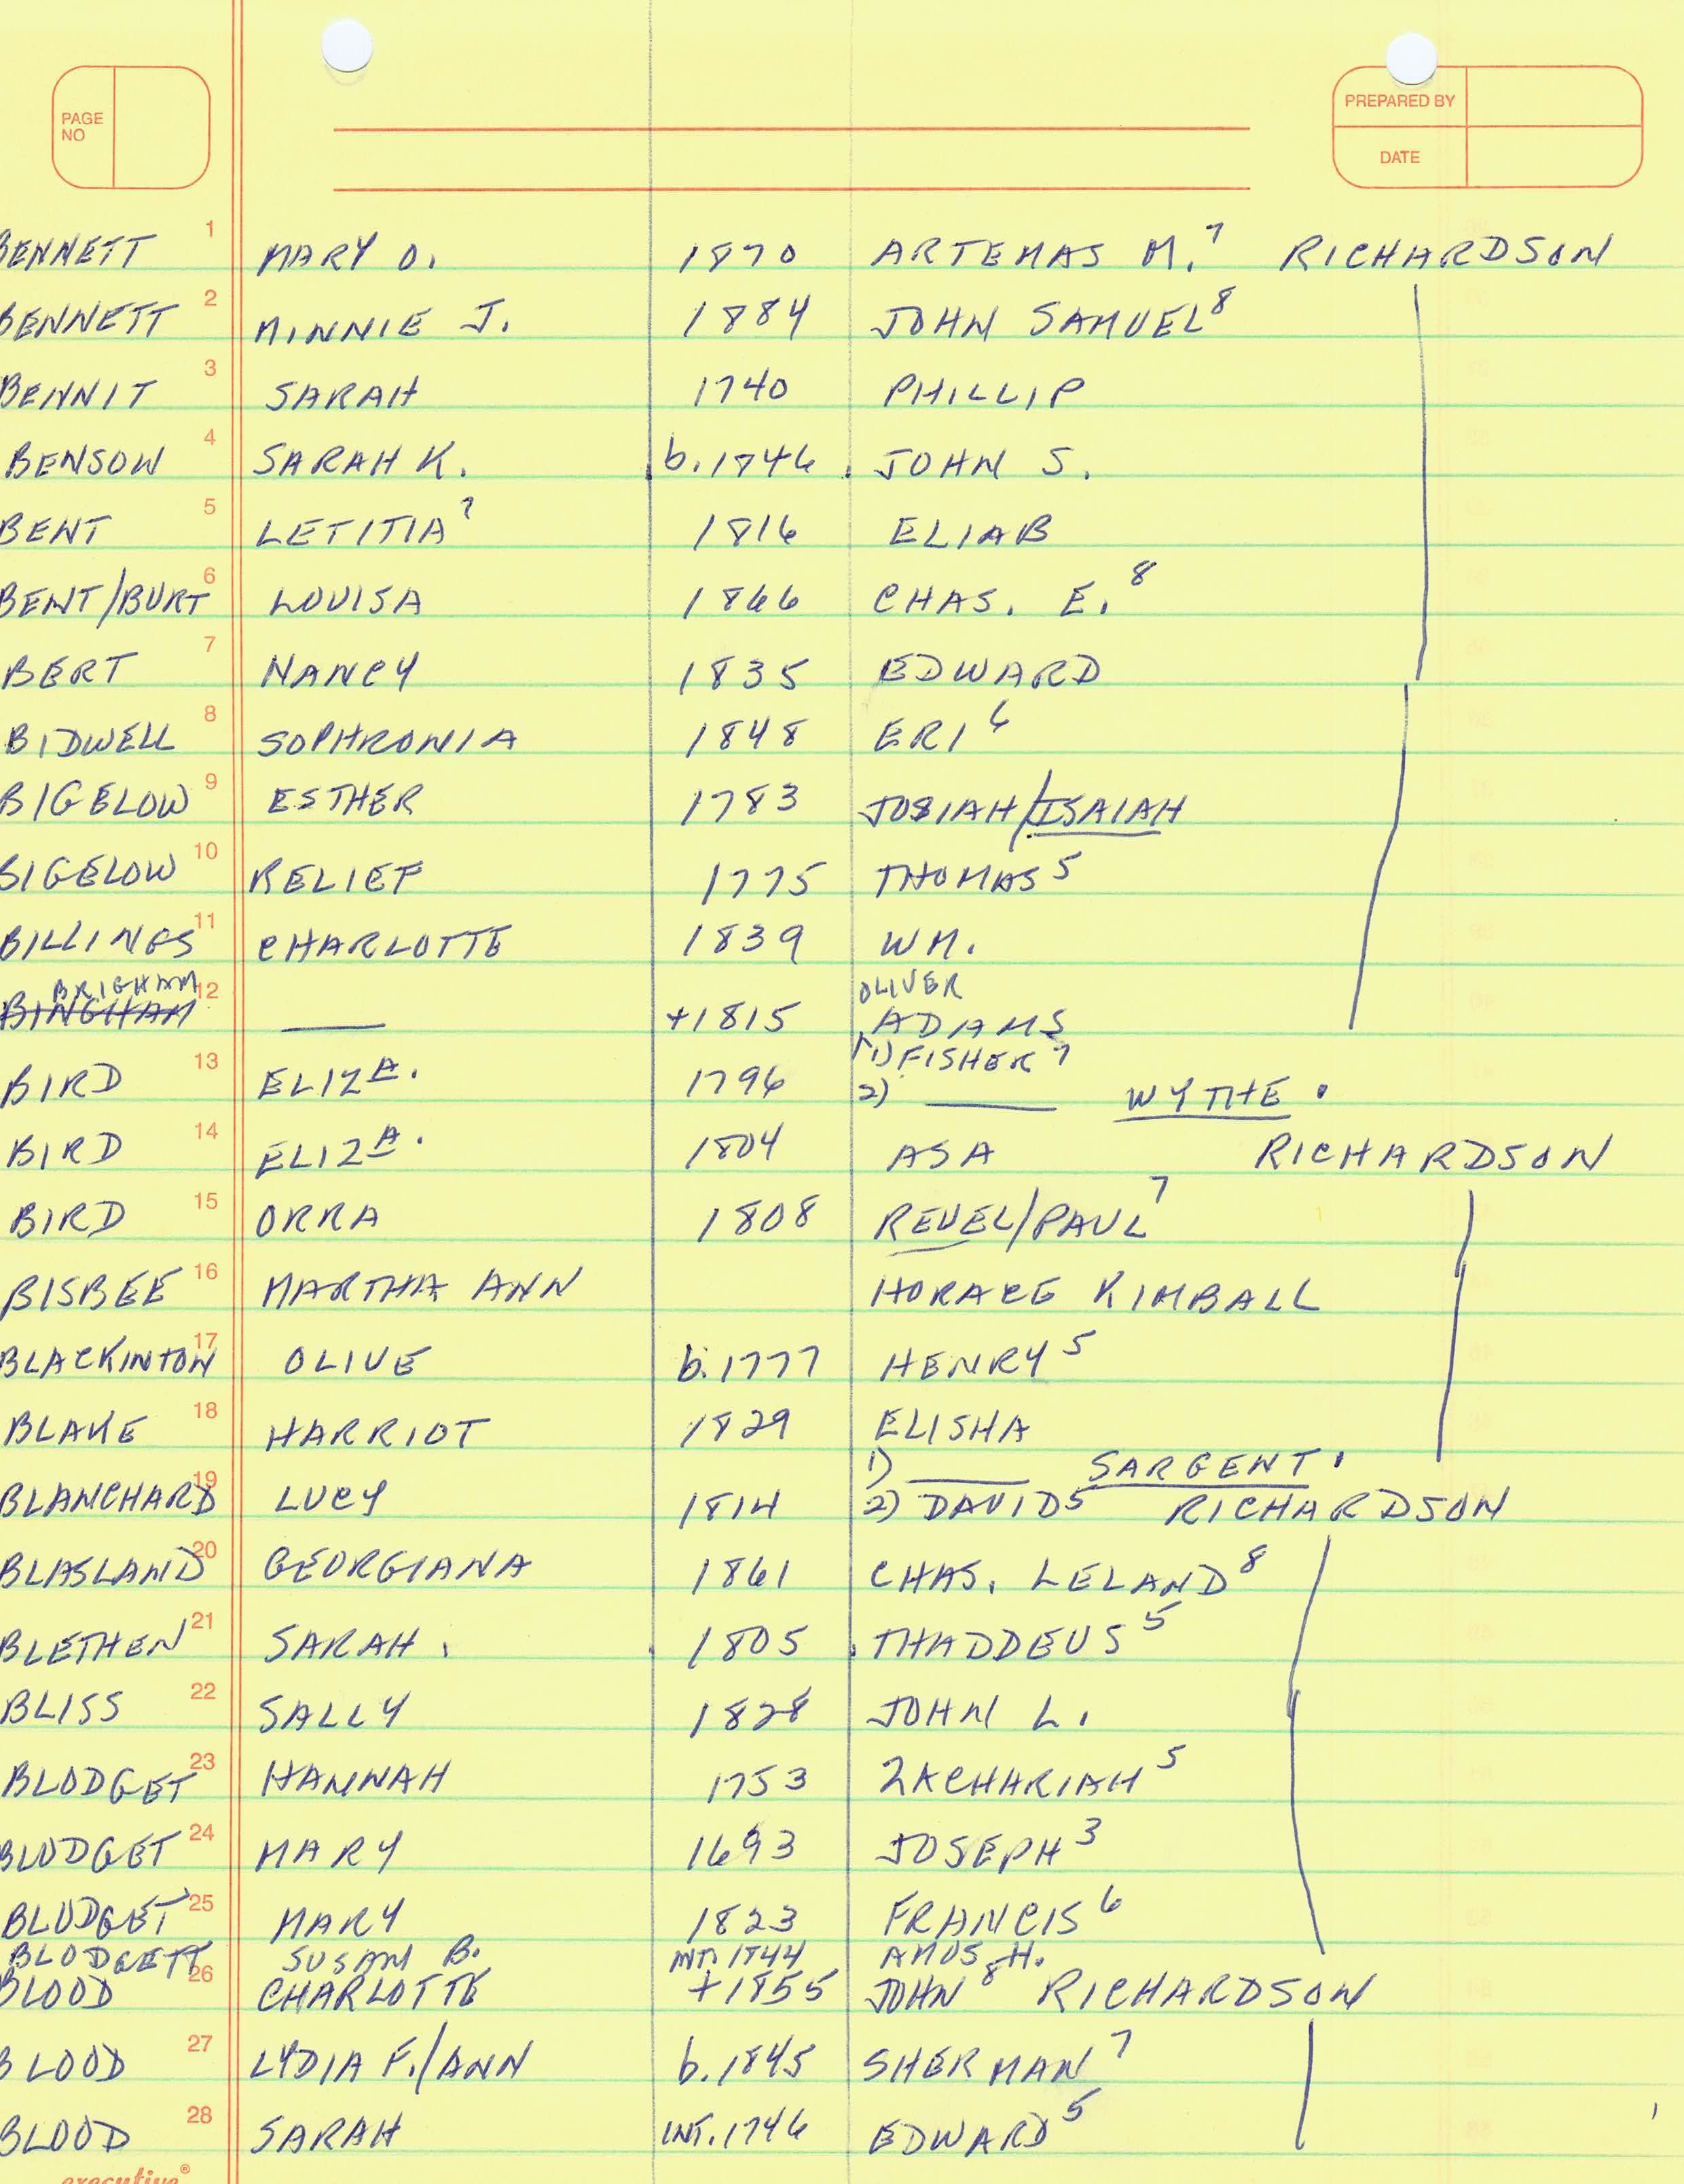 PAGE NO
PREPARED BY
DATE
BENNETT 1 MARY O. 1870 ARTEMAS M.⁷ RICHARDSON
BENNETT 2 MINNIE J. 1884 JOHN SAMUEL⁸
BENNIT 3 SARAH 1740 PHILLIP
BENSON 4 SARAH K. b. 1846 JOHN S.
BENT 5 LETITIA⁷ 1816 ELIAB
BENT/BURT 6 LOUISA 1866 CHAS. E.⁸
BERT 7 NANCY 1835 EDWARD
BIDWELL 8 SOPHRONIA 1848 ERI⁶
BIGELOW 9 ESTHER 1783 JOSIAH/ISAIAH
BIGELOW 10 RELIEF 1775 THOMAS⁵
BILLINGS 11 CHARLOTTE 1839 WM.
BRIGHAM OLIVER
BINGHAM 12 —— +1815 ADAMS
1) FISHER⁷
BIRD 13 ELIZA. 1796 2) —— WYTHE.
BIRD 14 ELIZA. 1804 ASA RICHARDSON
BIRD 15 ORRA 1808 REUEL/PAUL⁷
BISBEE 16 MARTHA ANN HORACE KIMBALL
BLACKINTON 17 OLIVE b. 1777 HENRY⁵
BLAKE 18 HARRIOT 1829 ELISHA
1) —— SARGENT.
BLANCHARD 19 LUCY 1814 2) DAVID⁵ RICHARDSON
BLASLAND 20 GEORGIANA 1861 CHAS. LELAND⁸
BLETHEN 21 SARAH 1805 THADDEUS⁵
BLISS 22 SALLY 1828 JOHN L.
BLODGET 23 HANNAH 1753 ZACHARIAH⁵
BLODGET 24 MARY 1693 JOSEPH³
BLODGET 25 MARY 1823 FRANCIS⁶
BLODGETT SUSAN B. INT. 1844 AMOS H.
BLOOD 26 CHARLOTTE +1855 JOHN⁸ RICHARDSON
BLOOD 27 LYDIA F./ANN b. 1845 SHERMAN⁷
BLOOD 28 SARAH INT. 1746 EDWARD⁵
executive®